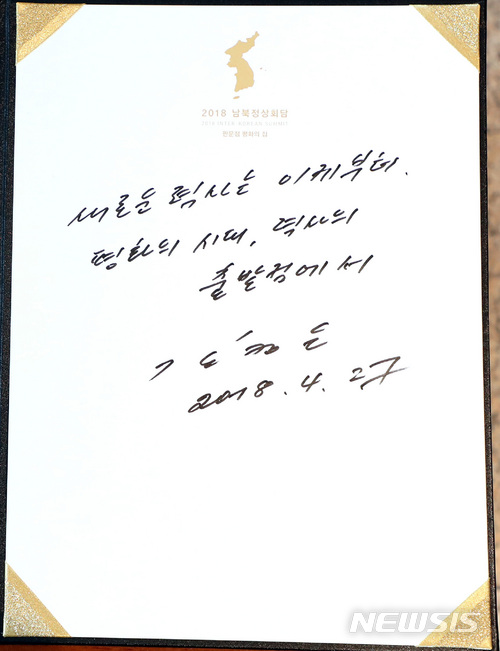 2018 남북정상회담
2018 INTER-KOREAN SUMMIT
판문점 평화의 집
새로운 력사는 이제부터.
평화의 시대, 력사의
출발점에서
김정은
2018. 4. 27
NEWSIS